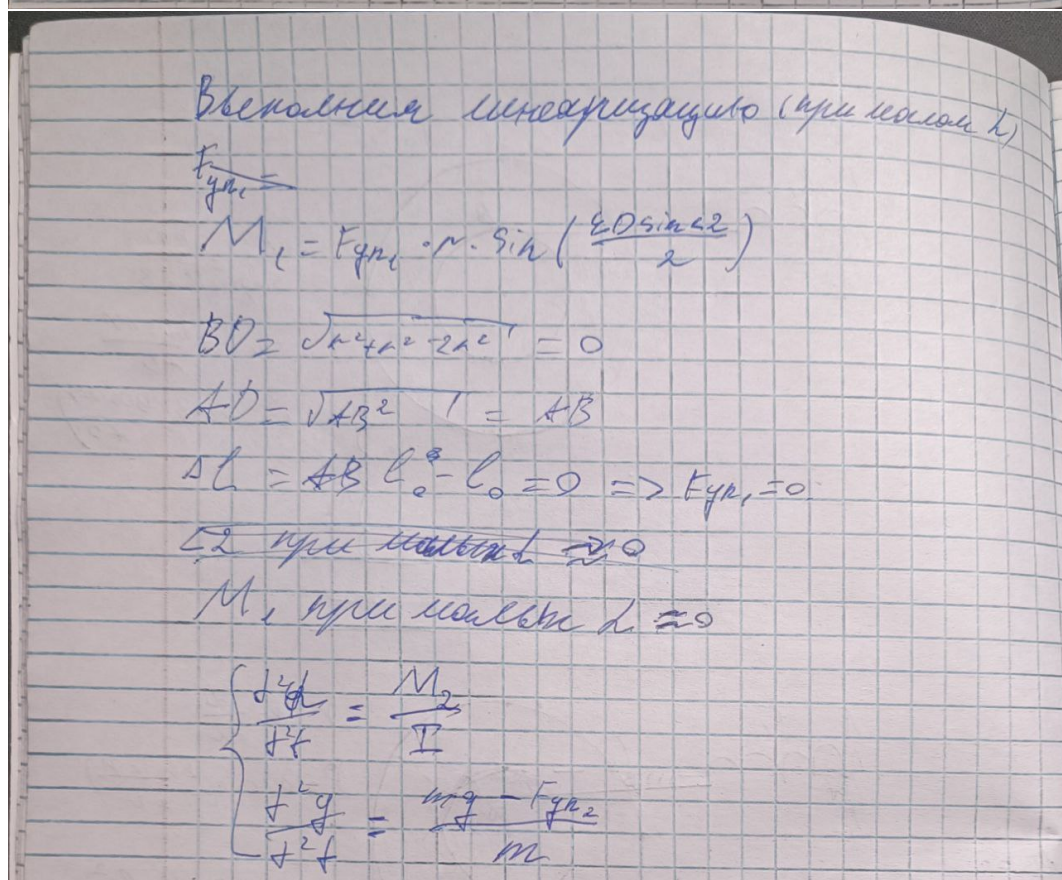 Выполним линеаризацию (при малом L)
Fупр₁ =
M₁ = Fупр₁ · r · sin ( / 2)
BD = √(r² + r² - 2r²) = 0
AD = √(AB²) = AB
Δl = AB l₀ - l₀ = 0 => Fупр₁ = 0
∠2 при малых L ≈ 0
M₁ при малых L ≈ 0
d²α / d²t = M₂ / I
d²y / d²t = (mg - Fупр₂) / m